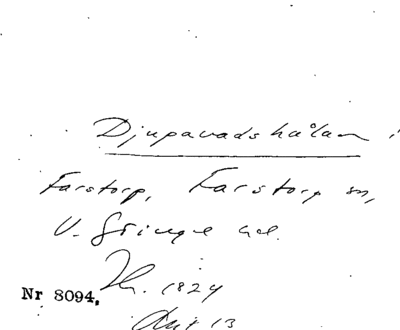 Djupavadshålan i
Farstorp, Farstorp sn,
V. Göinge hd.
Nr 8094. Th. 1824
Akt 13